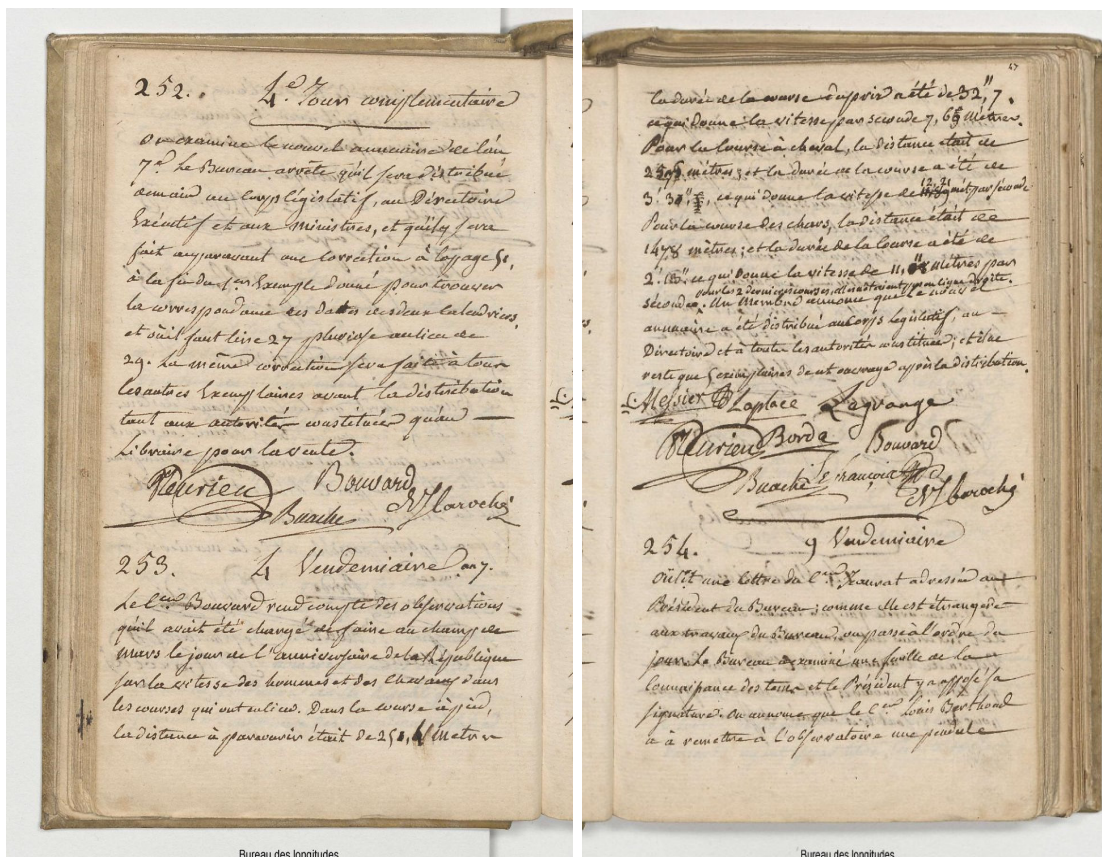 252. 4e. Jour complémentaire
on examine le nouvel annuaire de l'an
7e. Le Bureau arrête qu'il sera distribué
demain au corps législatif, au Directoire
Exécutif et aux ministres, et qu'il y sera
fait auparavant une correction à la page 51,
à la fin du 1er Exemple donné pour trouver
la correspondance des dates des deux calendriers,
et où il faut lire 27 pluviose au lieu de
29. La même correction sera faite à tous
les autres Exemplaires avant la distribution
tant aux autorités constituées qu'au
Libraire pour la vente.
Fleurieu Bouvard
Buache
253. 4 Vendemiaire an 7.
Le Cen Bouvard rend compte des observations
qu'il avait été chargé de faire au champ de
mars le jour de l'anniversaire de la République
sur la vitesse des hommes et des chevaux dans
les courses qui ont eu lieu. Dans la course à pied,
la distance à parcourir était de 251, metres
47
la durée de la course du prix a été de 32", 7.
ce qui donne la vitesse par seconde 7, mètres.
Pour la Course à cheval, la distance était de
mètres; et la durée de la course a été de
3. 30", ce qui donne la vitesse de 12,21 met. par seconde
Pour la course des chars, la distance était de
1478 mètres; et la durée de la Course a été de
2'. ce qui donne la vitesse de 11, mètres par
pour les 2 dernieres courses, en ligne droite.
seconde. Un Membre annonce que le nouvel
annuaire a été distribué au corps législatif, au
Directoire et à toutes les autorités constituées; et il ne
reste que 5 exemplaires de cet ouvrage après la distribution.
Messier Laplace Lagrange
Fleurieu Borda Bouvard
Buache Lefrançois
254. 9 Vendemiaire
On lit une lettre du Cen Jeaurat adressée au
Président du Bureau; comme elle est étrangère
aux travaux du Bureau, on passe à l'ordre du
jour. Le Bureau a examiné une feuille de la
Connaissance des tems et le Président y a apposé sa
signature. On annonce que le Cen Louis Berthoud
a à remettre à l'observatoire une pendule
Bureau des longitudes
Bureau des longitudes